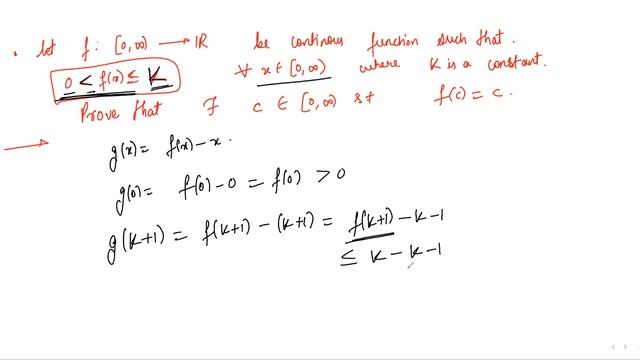 . let f : [0, ∞) ⟶ IR be continous function such that.
0 < f(x) ≤ K ∀ x ∈ [0, ∞) where K is a constant.
Prove that ∃ c ∈ [0, ∞) s.t f(c) = c.
g(x) = f(x) - x .
g(0) = f(0) - 0 = f(0) > 0
g(k+1) = f(k+1) - (k+1) = f(k+1) - k - 1
≤ k - k - 1